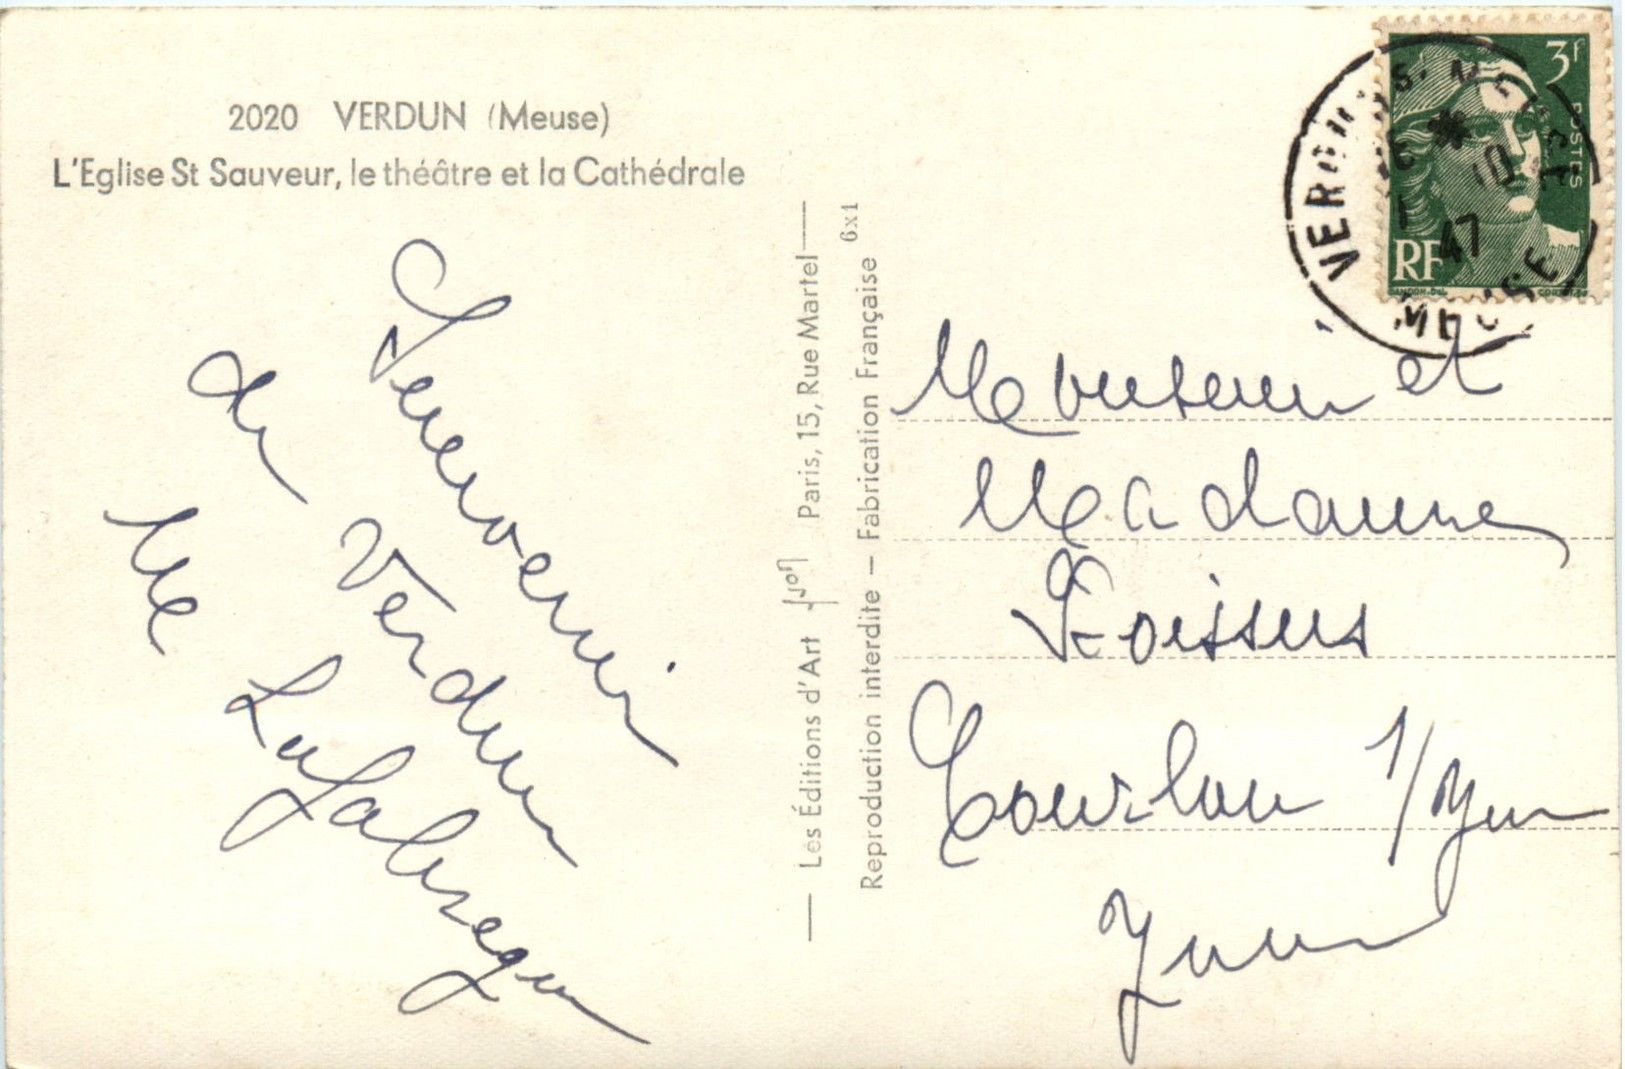 2020 VERDUN (Meuse)
L'Eglise St Sauveur, le théâtre et la Cathédrale
Souvenir
de Verdun
Me Lafabrègue
Les Éditions d'Art Yvon Paris, 15, Rue Martel
Reproduction interdite — Fabrication Française 6x1
3F
POSTES
RF
47
MEUSE
Monsieur et
Madame
Tourlon s/Yon
Yonne